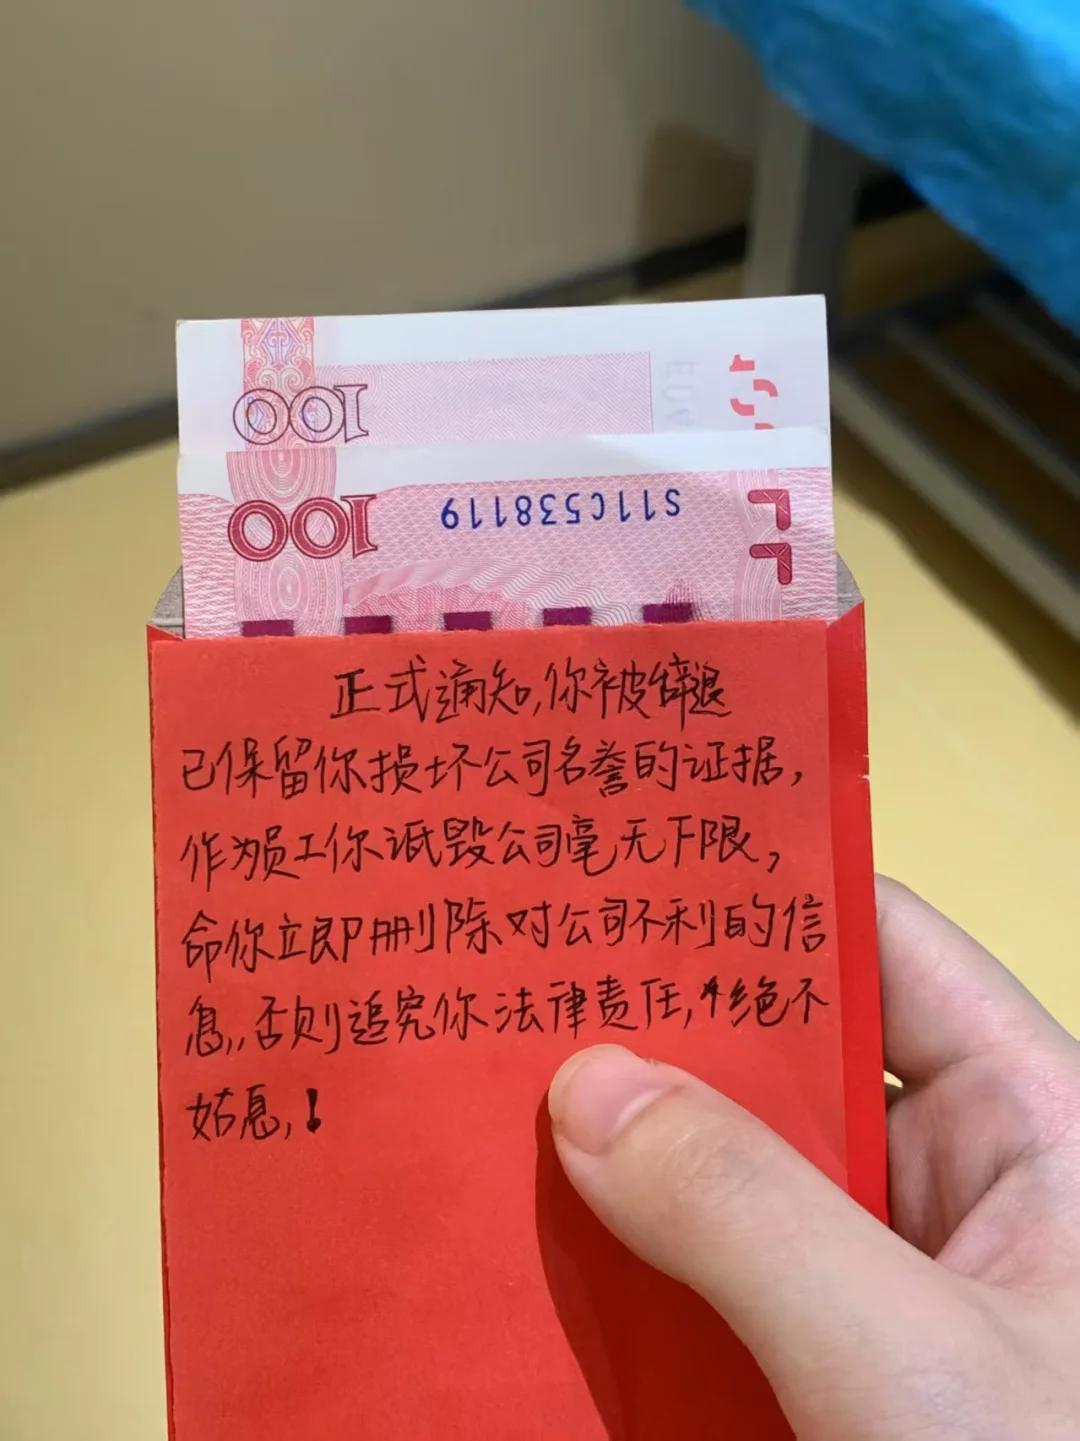 100
100
S11C538119
正式通知,你被辞退
已保留你损坏公司名誉的证据,
作为员工你诋毁公司毫无下限,
命你立即删除对公司不利的信
息,否则追究你法律责任,绝不
姑息,!